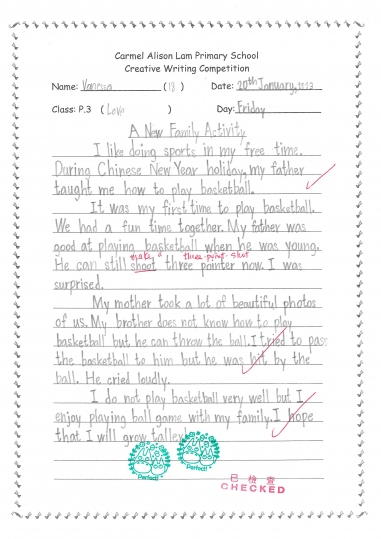 Carmel Alison Lam Primary School
Creative Writing Competition
Name: Vanessa (18) Date: 20th January, 2023
Class: P.3 (Love) Day: Friday
A New Family Activity
I like doing sports in my free time.
During Chinese New Year holiday, my father
taught me how to play basketball.
It was my first time to play basketball.
We had a fun time together. My father was
good at playing basketball when he was young.
make a three-point shot
He can still shoot three pointer now. I was
surprised.
My mother took a lot of beautiful photos
of us. My brother does not know how to play
basketball but he can throw the ball. I tried to pass
the basketball to him but he was hit by the
ball. He cried loudly.
I do not play basketball very well but I
enjoy playing ball game with my family. I hope
that I will grow taller.
Perfect! Perfect!
已檢查
CHECKED